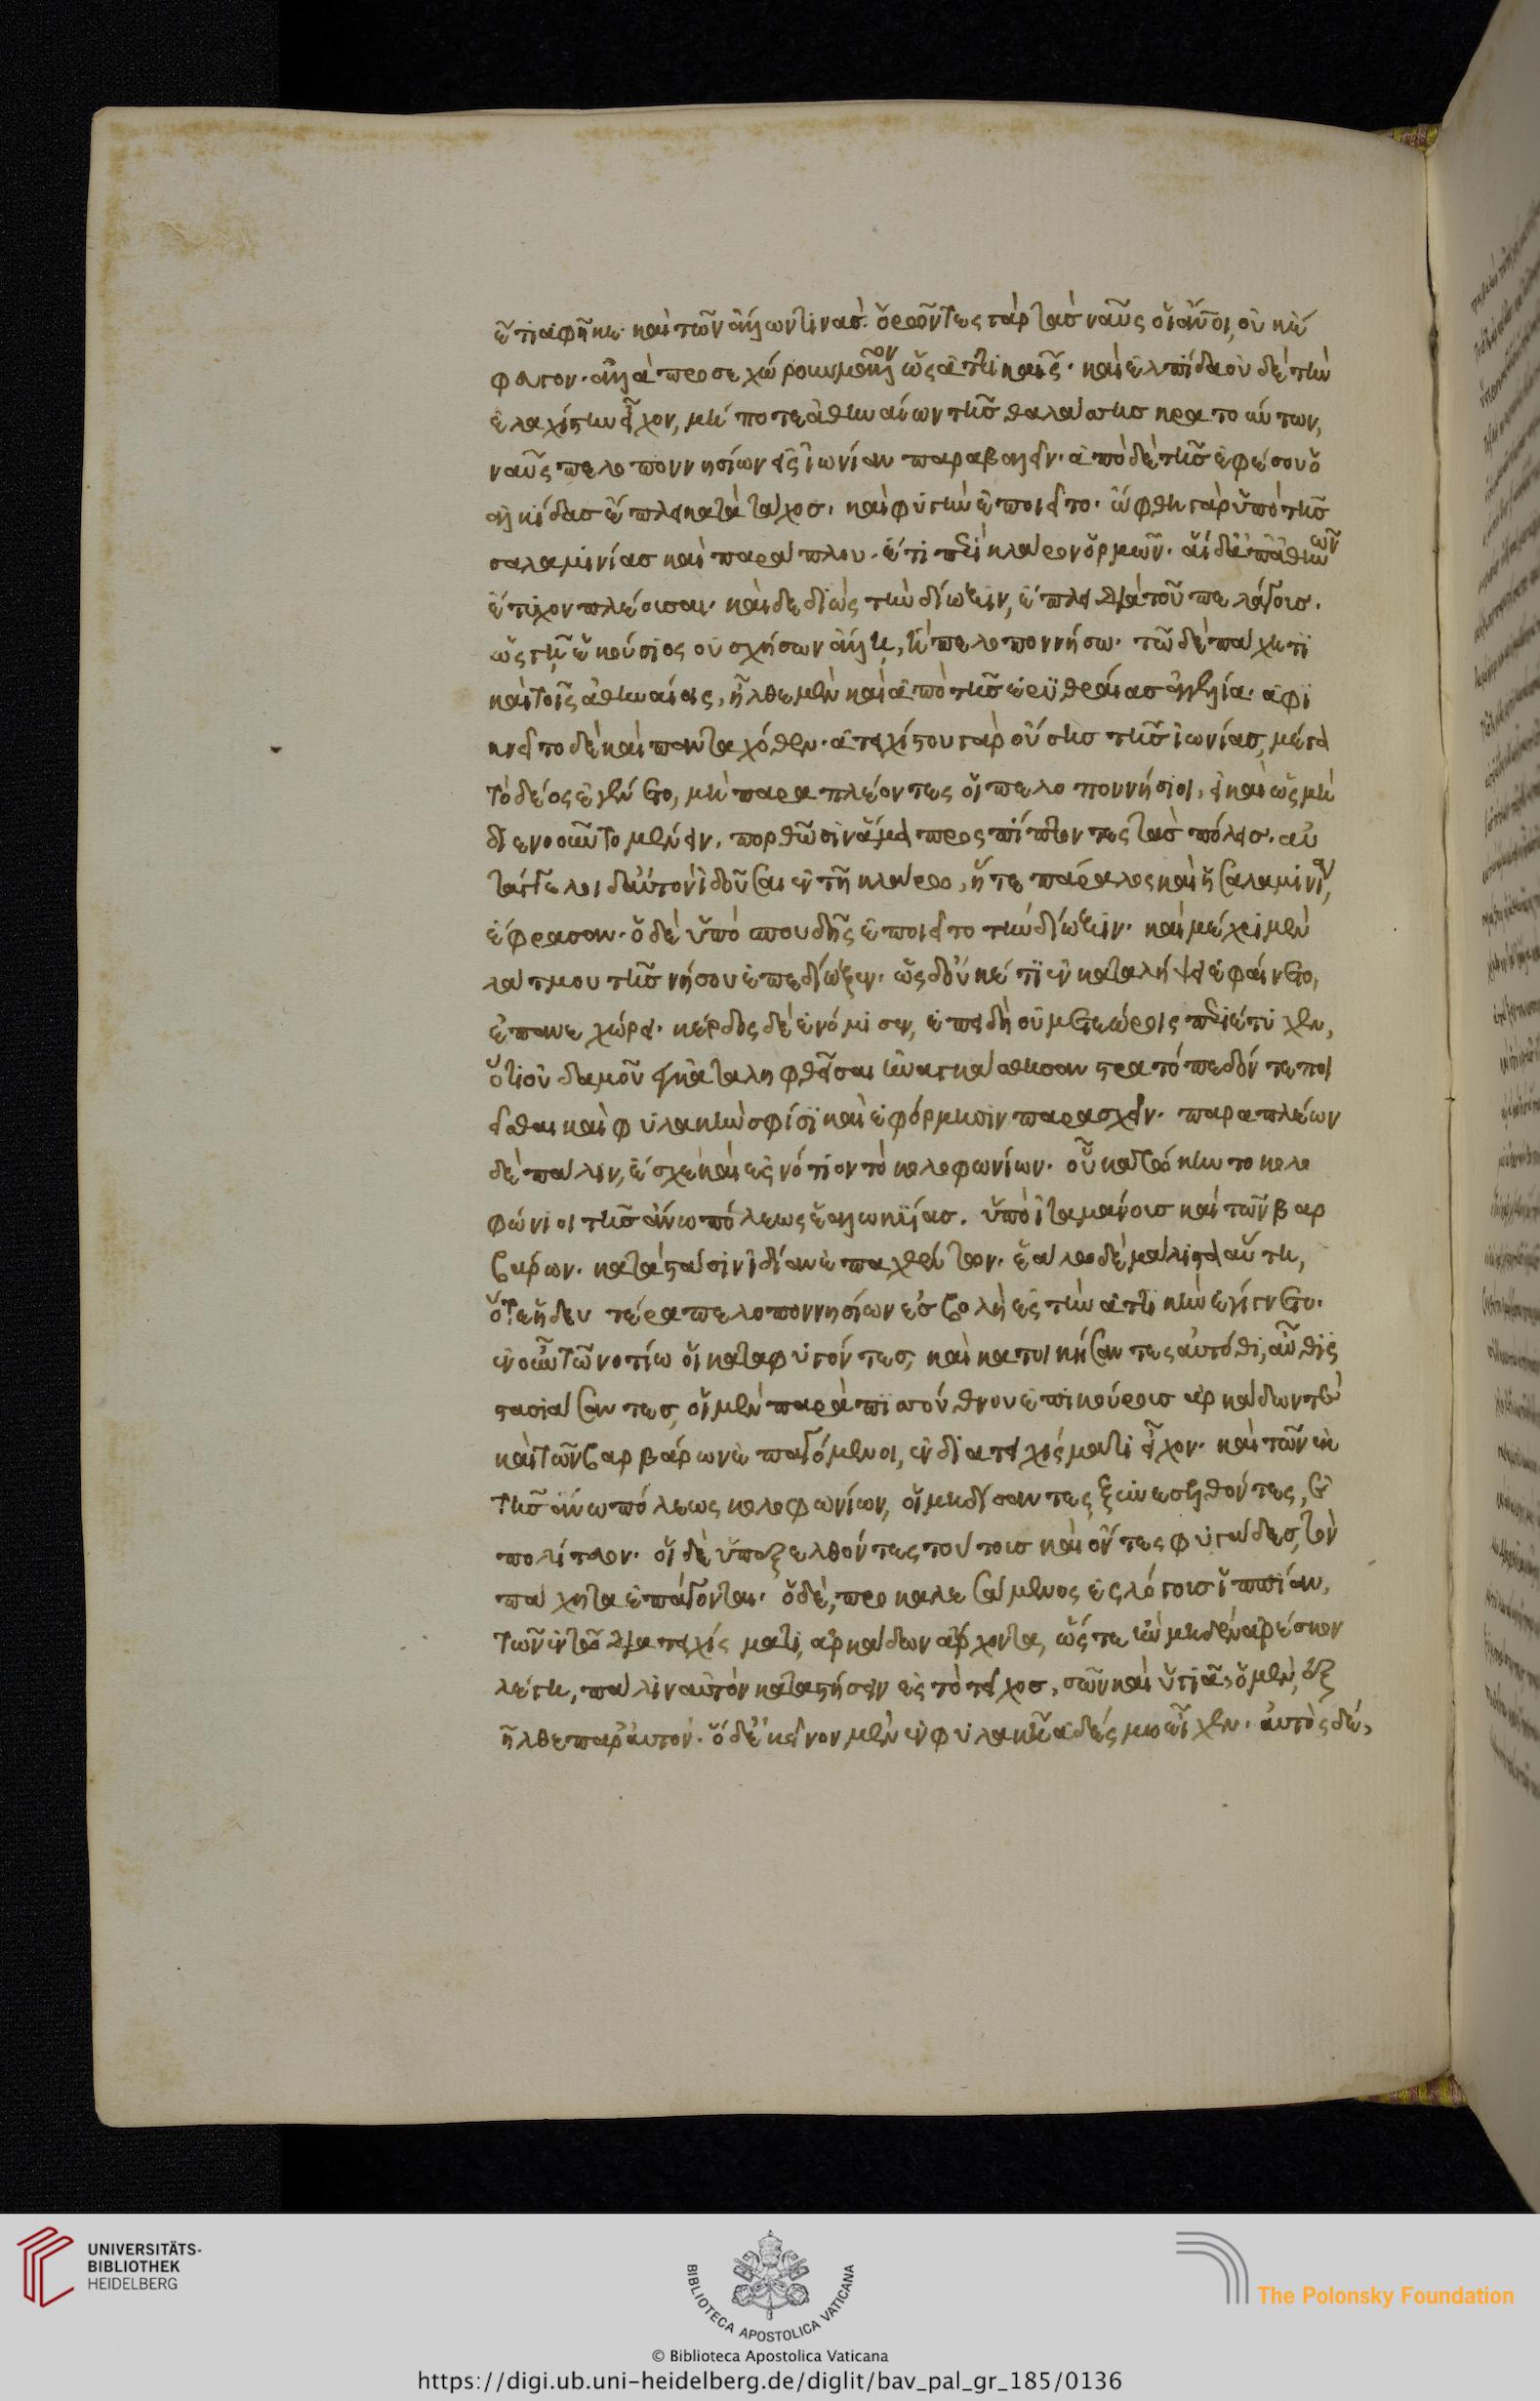 ἔτι ἀφῆκε· καὶ τῶν ἄλλων τινάς. ὁρῶντες γὰρ τὰς ναῦς οἱ ἄνθρωποι, οὐκ ἔ
φευγον· ἀλλὰ προσεχώρουν μᾶλλον ὡς ἀττικαῖς· καὶ ἐλπίδα οὐδὲ τὴν
ἐλαχίστην εἶχον, μή ποτε ἀθηναίων τῆς θαλάσσης κρατούντων,
ναῦς πελοποννησίων εἰς ἰωνίαν παραβαλεῖν· ἀπὸ δὲ τῆς ἐφέσου ὁ
ἀλκίδας ἔπλει κατὰ τάχος. καὶ φυγὴν ἐποιεῖτο· ὤφθη γὰρ ὑπὸ τῆς
σαλαμινίας καὶ παράλου. ἔτι περὶ κλάρον ὁρμῶν· αἱ δ' ἀπ' ἀθηνῶν
ἔτυχον πλέουσαι· καὶ δεδιὼς τὴν δίωξιν, ἔπλει διὰ τοῦ πελάγους.
ὡς γῇ ἑκούσιος οὐ σχήσων ἄλλῃ, ἢ πελοποννήσω· τῶ δὲ πάχητι
καὶ τοῖς ἀθηναίοις, ἦλθε μὲν καὶ ἀπὸ τῆς ἐρυθραίας ἀγγελία· ἀφι
κνεῖτο δὲ καὶ πανταχόθεν· ἀτειχίστου γὰρ οὔσης τῆς ἰωνίας, μέγα
τὸ δέος ἐγένετο, μὴ παραπλέοντες οἱ πελοποννήσιοι, εἰ καὶ ὣς μὴ
διενοοῦντο μένειν, πορθῶσιν ἅμα προσπίπτοντες τὰς πόλεις· αὐ
τάγγελοι δ' αὐτὸν ἰδοῦσαι ἐν τῇ κλάρω, ἥ τε πάραλος καὶ ἡ σαλαμινία,
ἔφρασαν· ὁ δὲ ὑπὸ σπουδῆς ἐποιεῖτο τὴν δίωξιν· καὶ μέχρι μὲν
λάτμου τῆς νήσου ἐπεδίωξεν· ὡς δ' οὐκέτι ἐν καταλήψει ἐφαίνετο,
ἐπανεχώρει· κέρδος δὲ ἐνόμισεν, ἐπειδὴ οὐ μετεώροις περιέτυχεν,
ὅτι οὐδαμοῦ ἐγκαταληφθεῖσαι ἠναγκάσθησαν στρατόπεδόν τε ποι
εῖσθαι καὶ φυλακὴν σφίσι καὶ ἐφόρμησιν παρασχεῖν· παραπλέων
δὲ πάλιν, ἔσχε καὶ ἐς νότιον τὸ κολοφωνίων· οὗ κατώκηντο κολο
φώνιοι τῆς ἄνω πόλεως ἑαλωκυίας. ὑπὸ ἰταμάνους καὶ τῶν βαρ
βάρων· κατὰ στάσιν ἰδίαν ἐπαχθέντων· ἑάλω δὲ μάλιστα αὕτη,
ὅτε ἡ δευτέρα πελοποννησίων ἐσβολὴ ἐς τὴν ἀττικὴν ἐγίγνετο.
ἐν οὖν τῶ νοτίω οἱ καταφυγόντες, καὶ κατοικήσαντες αὐτόθι, αὖθις
στασιάσαντες, οἱ μὲν παρὰ πισσούθνου ἐπικούρους ἀρκάδων τε
καὶ τῶν βαρβάρων ἐπαγόμενοι, ἐν διατειχίσματι εἶχον· καὶ τῶν ἐκ
τῆς ἄνω πόλεως κολοφωνίων, οἱ μηδίσαντες, ξυνεσελθόντες, ἐ
πολίτευον· οἱ δὲ ὑπεξελθόντες τούτους καὶ ὄντες φυγάδες, τὸν
πάχητα ἐπάγονται· ὁ δὲ, προκαλεσάμενος ἐς λόγους ἱππίαν,
τῶν ἐν τῶ διατειχίσματι, ἀρκάδων ἄρχοντα, ὥστε ἢν μηδὲν ἀρέσκον
λέγη, πάλιν αὐτὸν καταστήσειν ἐς τὸ τεῖχος, σῶν καὶ ὑγιᾶ· ὁ μὲν, ἐξ
ῆλθε παρ' αὐτόν· ὁ δ' ἐκεῖνον μὲν ἐν φυλακῇ ἀδέσμω εἶχεν. αὐτὸς δὲ,
UNIVERSITÄTS-
BIBLIOTHEK
HEIDELBERG
BIBLIOTECA APOSTOLICA VATICANA
The Polonsky Foundation
© Biblioteca Apostolica Vaticana
https://digi.ub.uni-heidelberg.de/diglit/bav_pal_gr_185/0136